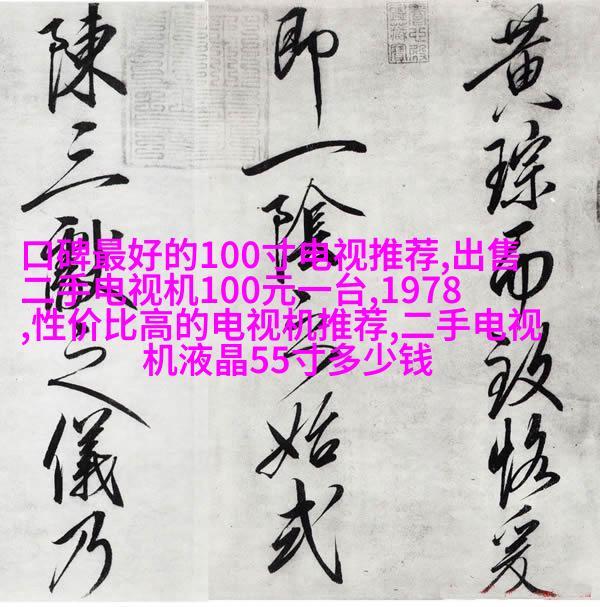 黄琮而致恪爰
即一陰始式
陳三獻之儀乃
口碑最好的100寸电视推荐,出售
二手电视机100元一台,1978
,性价比高的电视机推荐,二手电视
机液晶55寸多少钱